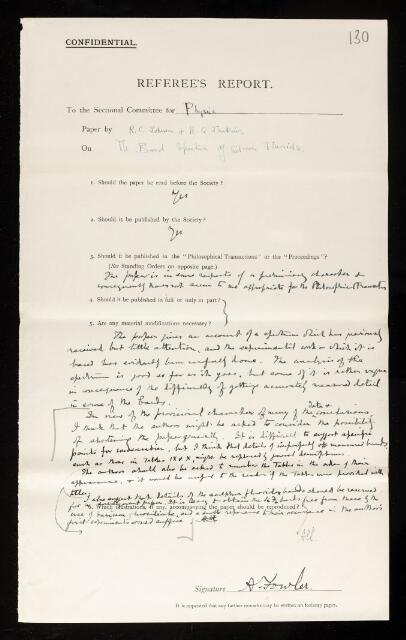 130
CONFIDENTIAL.
REFEREE'S REPORT.
To the Sectional Committee for Physics
Paper by R.C. Johnson & H. G. Jenkins
On The Band Spectra of Silicon Fluoride.
1. Should the paper be read before the Society?
Yes
2. Should it be published by the Society?
Yes
3. Should it be published in the "Philosophical Transactions" or the "Proceedings"?
(See Standing Orders on opposite page.)
The paper is in some respects of a preliminary character &
consequently does not seem to me appropriate for the Philosophical Transactions
4. Should it be published in full or only in part?
5. Are any material modifications necessary?
The paper gives an account of a spectrum which has previously
received but little attention, and the experimental work on which it is
based has evidently been carefully done. The analysis of the
spectrum is good so far as it goes, but some of it is rather vague
in consequence of the difficulty of getting accurately measured detail
in some of the bands.
In view of the provisional character of many of the data & conclusions,
I think that the authors might be asked to consider the possibility
of shortening the paper generally. It is difficult to suggest specific
points for condensation, but I think that details of imperfectly measured bands,
such as those in Tables IX & X, might be replaced by general descriptions.
The authors should also be asked to number the Tables in the order of their
appearance, & it would be useful to the reader if the Tables were provided with
titles.
I also suggest that details of the should be reserved
for
6. Which illustrations, if any, accompanying the paper should be reproduced?
All
Signature A. Fowler.
It is requested that any further remarks may be written on foolscap paper.